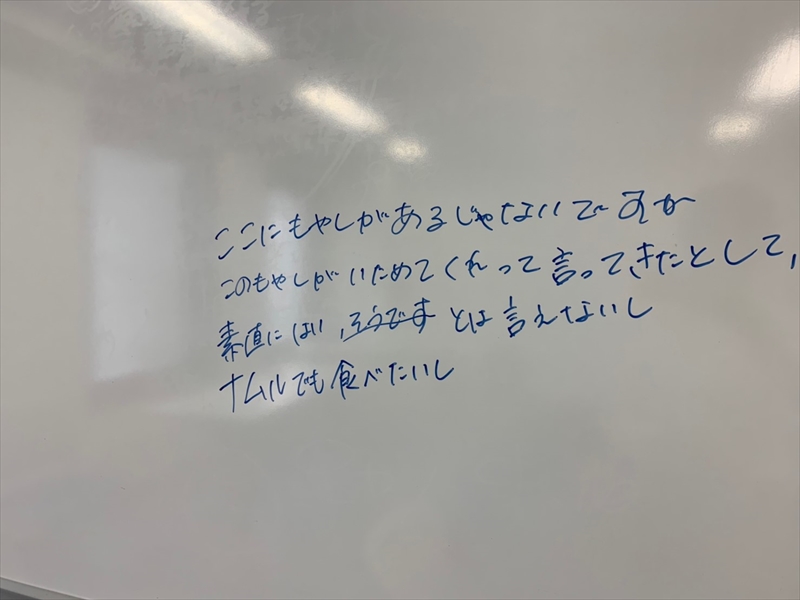 ここにもやしがあるじゃないですか
このもやしがいためてくれって言ってきたとして、
素直にはい、そうです とは言えないし
ナムルでも食べたいし